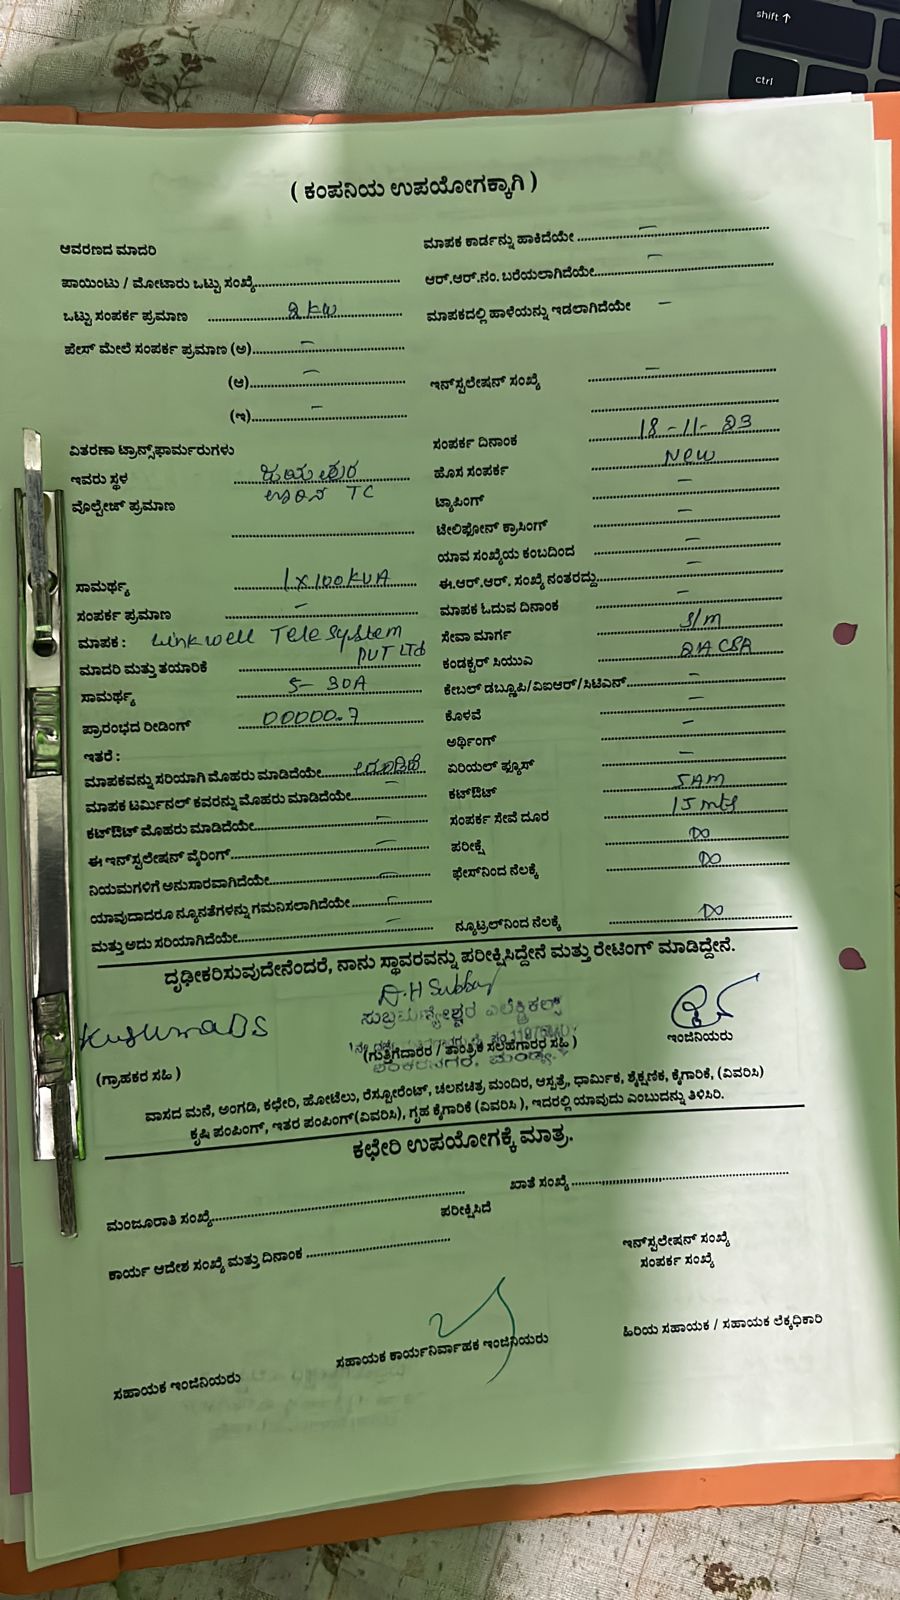 shift ↑
ctrl
( ಕಂಪನಿಯ ಉಪಯೋಗಕ್ಕಾಗಿ )
ಆವರಣದ ಮಾದರಿ
ಮಾಪಕ ಕಾರ್ಡನ್ನು ಹಾಕಿದೆಯೇ ........ –
ಪಾಯಿಂಟು / ಮೋಟಾರು ಒಟ್ಟು ಸಂಖ್ಯೆ........
ಆರ್.ಆರ್.ನಂ. ಬರೆಯಲಾಗಿದೆಯೇ........ –
ಒಟ್ಟು ಸಂಪರ್ಕ ಪ್ರಮಾಣ ........ 2 KW
ಮಾಪಕದಲ್ಲಿ ಹಾಳೆಯನ್ನು ಇಡಲಾಗಿದೆಯೇ –
ಪೇಸ್ ಮೇಲೆ ಸಂಪರ್ಕ ಪ್ರಮಾಣ (ಅ)........ –
(ಆ)........ –
ಇನ್‌ಸ್ಟಲೇಷನ್ ಸಂಖ್ಯೆ ........ –
(ಇ)........ –
ವಿತರಣಾ ಟ್ರಾನ್ಸ್‌ಫಾರ್ಮರುಗಳು
ಸಂಪರ್ಕ ದಿನಾಂಕ ........ 18-11-23
ಇವರು ಸ್ಥಳ ........
ಹೊಸ ಸಂಪರ್ಕ ........ New
ವೊಲ್ಟೇಜ್ ಪ್ರಮಾಣ TC
ಟ್ಯಾಪಿಂಗ್ ........ –
ಟೇಲಿಫೋನ್ ಕ್ರಾಸಿಂಗ್ ........ –
ಯಾವ ಸಂಖ್ಯೆಯ ಕಂಬದಿಂದ ........ –
ಸಾಮರ್ಥ್ಯ ........ 1 x 100 KVA
ಈ.ಆರ್.ಆರ್. ಸಂಖ್ಯೆ ನಂತರದ್ದು........ –
ಸಂಪರ್ಕ ಪ್ರಮಾಣ ........ –
ಮಾಪಕ ಓದುವ ದಿನಾಂಕ ........ –
ಮಾಪಕ : Linkwell Tele System
ಸೇವಾ ಮಾರ್ಗ ........ S/M
ಮಾದರಿ ಮತ್ತು ತಯಾರಿಕೆ ........ PVT Ltd
ಕಂಡಕ್ಟರ್ ಸಿಯುಎ ........
ಸಾಮರ್ಥ್ಯ ........ 5-30A
ಕೇಬಲ್ ಡಬ್ಲ್ಯೂಪಿ/ವಿಐಆರ್/ಸಿಟಿಎನ್........ –
ಪ್ರಾರಂಭದ ರೀಡಿಂಗ್ ........ 00000.7
ಕೊಳವೆ ........ –
ಇತರೆ :
ಅರ್ಥಿಂಗ್ ........ –
ಮಾಪಕವನ್ನು ಸರಿಯಾಗಿ ಮೊಹರು ಮಾಡಿದೆಯೇ........
ಏರಿಯಲ್ ಫ್ಯೂಸ್ ........ –
ಮಾಪಕ ಟರ್ಮಿನಲ್ ಕವರನ್ನು ಮೊಹರು ಮಾಡಿದೆಯೇ........ –
ಕಟ್‌ಔಟ್ ........ 5AM
ಕಟ್‌ಔಟ್ ಮೊಹರು ಮಾಡಿದೆಯೇ........ –
ಸಂಪರ್ಕ ಸೇವೆ ದೂರ ........ 15 mts
ಈ ಇನ್‌ಸ್ಟಲೇಷನ್ ವೈರಿಂಗ್........ –
ಪರೀಕ್ಷೆ ........ DO
ನಿಯಮಗಳಿಗೆ ಅನುಸಾರವಾಗಿದೆಯೇ........ –
ಫೇಸ್‌ನಿಂದ ನೆಲಕ್ಕೆ ........ DO
ಯಾವುದಾದರೂ ನ್ಯೂನತೆಗಳನ್ನು ಗಮನಿಸಲಾಗಿದೆಯೇ........ –
ಮತ್ತು ಅದು ಸರಿಯಾಗಿದೆಯೇ........ –
ನ್ಯೂಟ್ರಲ್‌ನಿಂದ ನೆಲಕ್ಕೆ ........ DO
ದೃಢೀಕರಿಸುವುದೇನೆಂದರೆ, ನಾನು ಸ್ಥಾವರವನ್ನು ಪರೀಕ್ಷಿಸಿದ್ದೇನೆ ಮತ್ತು ರೇಟಿಂಗ್ ಮಾಡಿದ್ದೇನೆ.
ಸುಬ್ರಮಣ್ಯೇಶ್ವರ ಎಲೆಕ್ಟ್ರಿಕಲ್ಸ್
ಇಂಜಿನಿಯರು
(ಗ್ರಾಹಕರ ಸಹಿ )
(ಗುತ್ತಿಗೆದಾರರ / ತಾಂತ್ರಿಕ ಸಲಹೆಗಾರರ ಸಹಿ )
ಮಂಡ್ಯ.
ವಾಸದ ಮನೆ, ಅಂಗಡಿ, ಕಛೇರಿ, ಹೋಟೆಲು, ರೆಸ್ಟೋರೆಂಟ್, ಚಲನಚಿತ್ರ ಮಂದಿರ, ಆಸ್ಪತ್ರೆ, ಧಾರ್ಮಿಕ, ಶೈಕ್ಷಣಿಕ, ಕೈಗಾರಿಕೆ, (ವಿವರಿಸಿ)
ಕೃಷಿ ಪಂಪಿಂಗ್, ಇತರ ಪಂಪಿಂಗ್(ವಿವರಿಸಿ), ಗೃಹ ಕೈಗಾರಿಕೆ (ವಿವರಿಸಿ ), ಇದರಲ್ಲಿ ಯಾವುದು ಎಂಬುದನ್ನು ತಿಳಿಸಿರಿ.
ಕಛೇರಿ ಉಪಯೋಗಕ್ಕೆ ಮಾತ್ರ.
ಮಂಜೂರಾತಿ ಸಂಖ್ಯೆ........
ಖಾತೆ ಸಂಖ್ಯೆ ........
ಪರೀಕ್ಷಿಸಿದೆ
ಕಾರ್ಯ ಆದೇಶ ಸಂಖ್ಯೆ ಮತ್ತು ದಿನಾಂಕ ........
ಇನ್‌ಸ್ಟಲೇಷನ್ ಸಂಖ್ಯೆ
ಸಂಪರ್ಕ ಸಂಖ್ಯೆ
ಸಹಾಯಕ ಇಂಜಿನಿಯರು
ಸಹಾಯಕ ಕಾರ್ಯನಿರ್ವಾಹಕ ಇಂಜಿನಿಯರು
ಹಿರಿಯ ಸಹಾಯಕ / ಸಹಾಯಕ ಲೆಕ್ಕಧಿಕಾರಿ